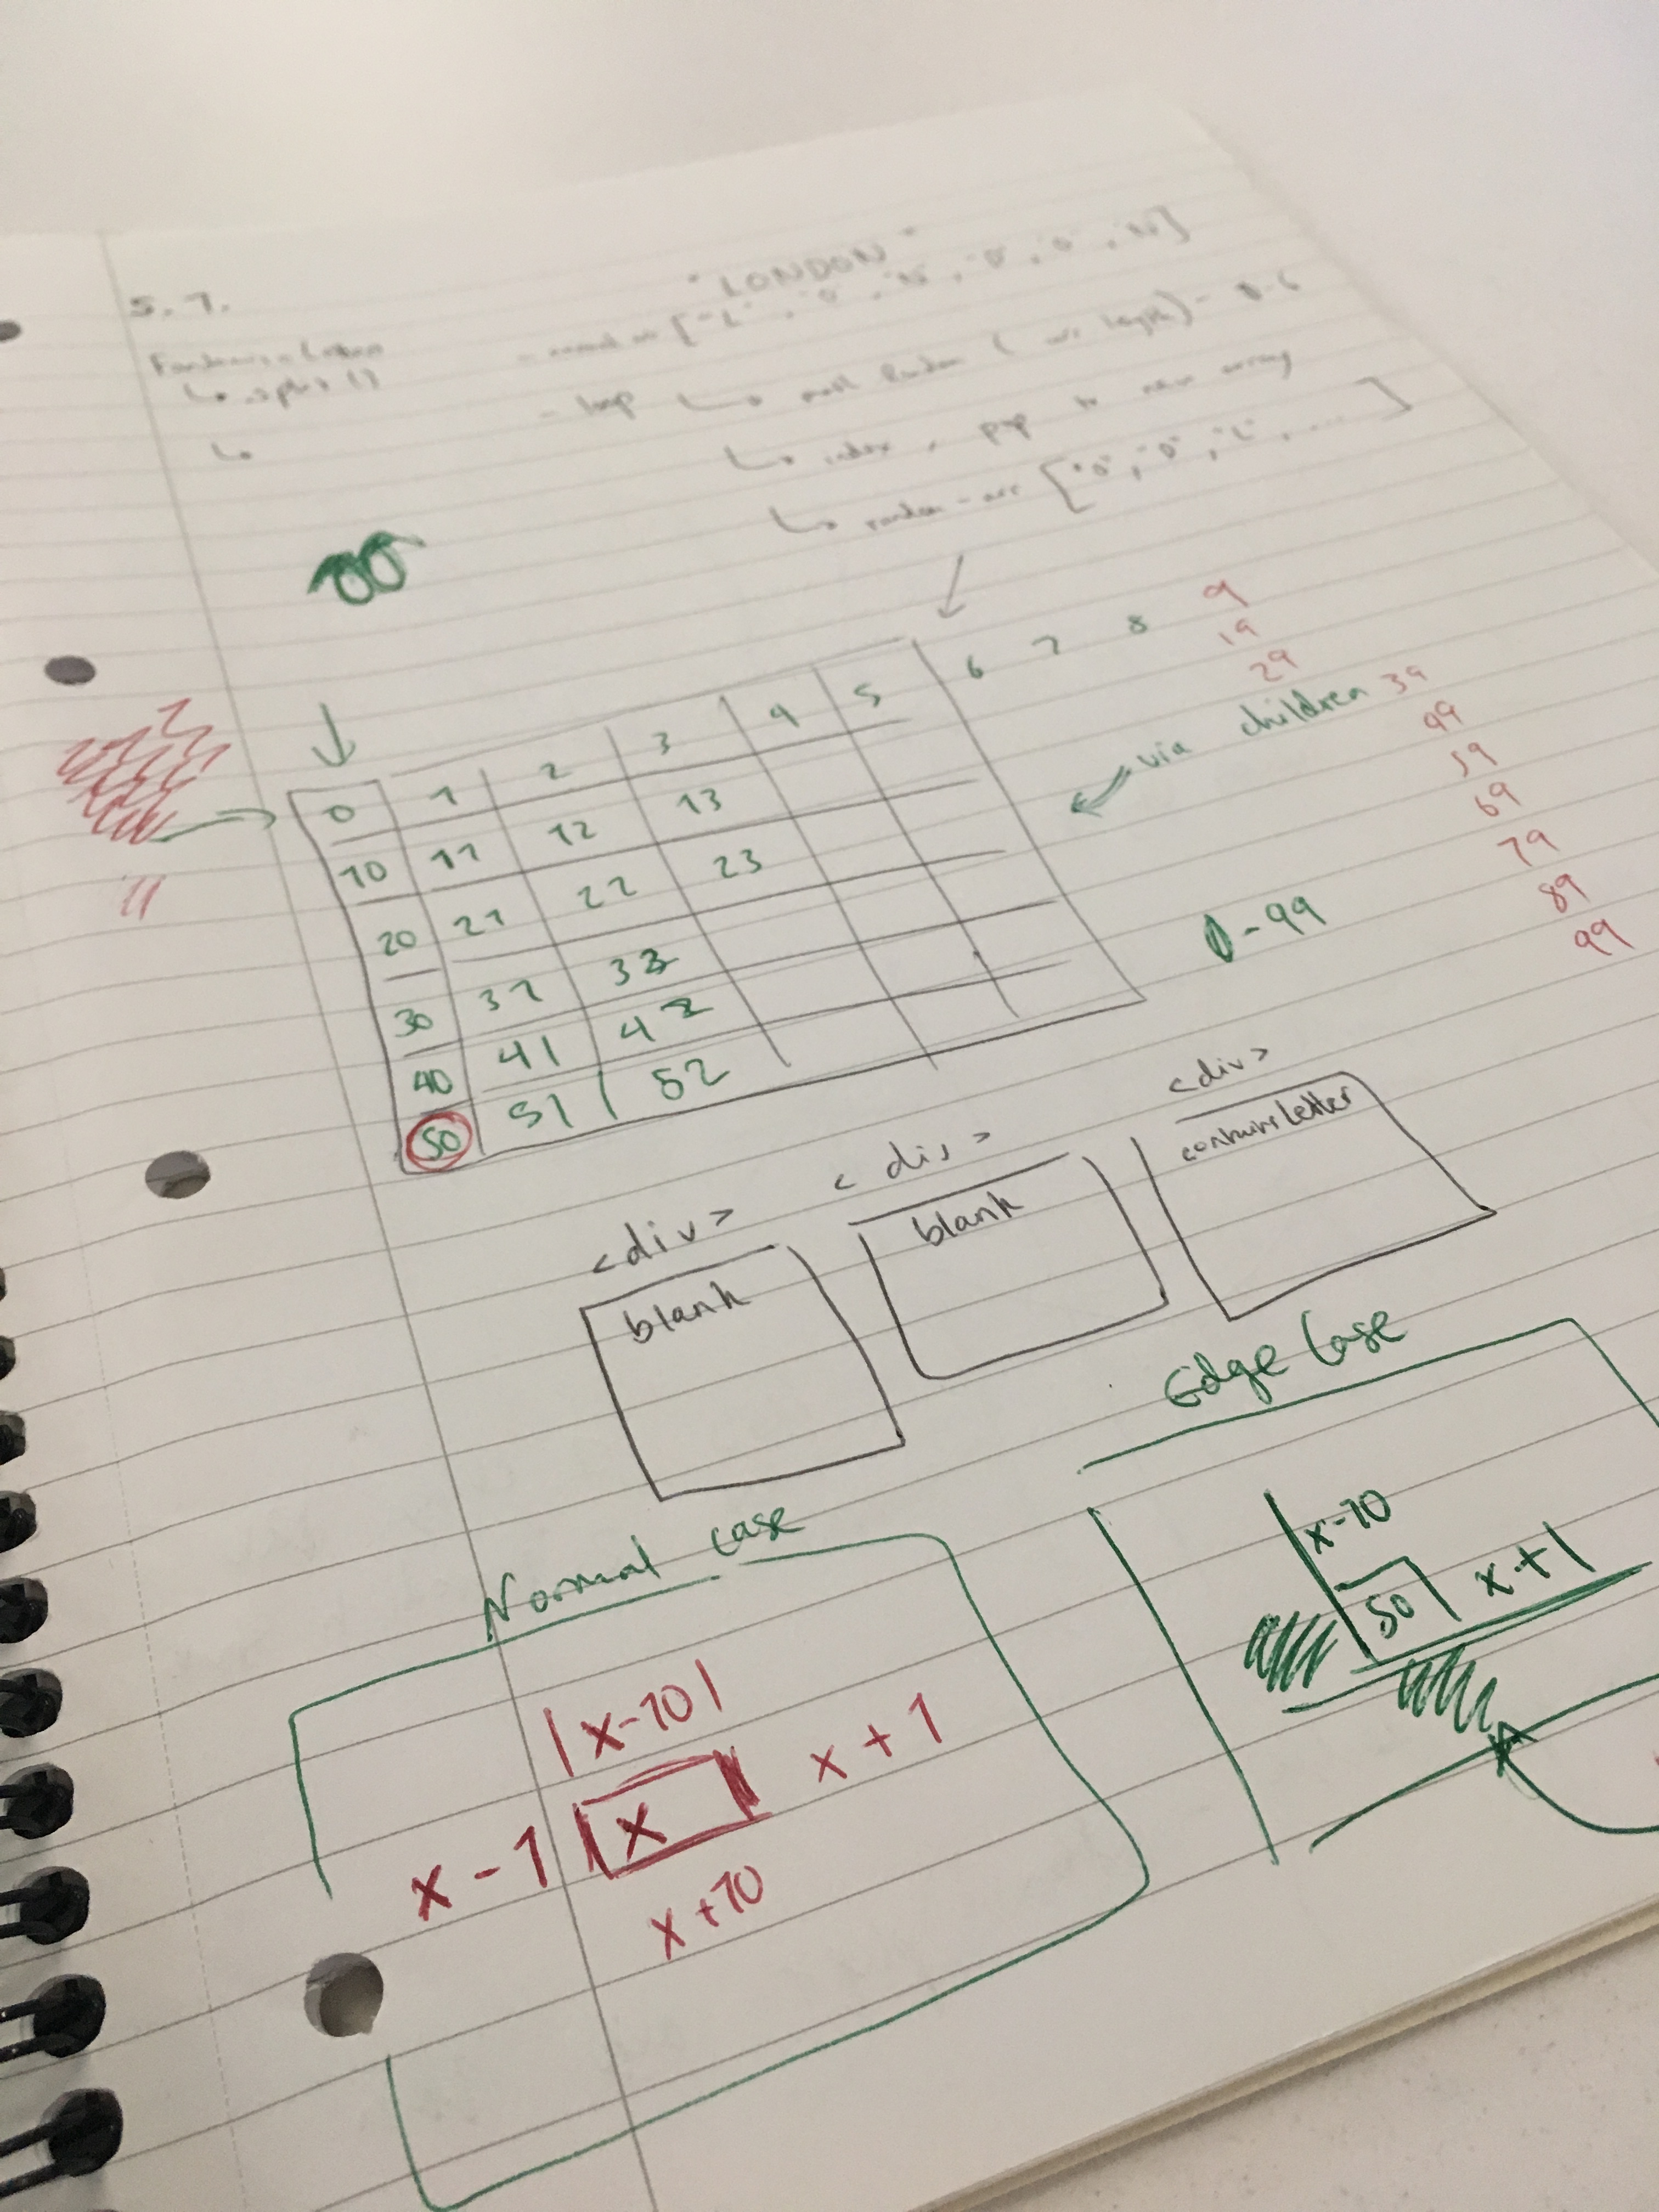 "LONDON"
5.7.
["L", "O", "N", "D", "O", "N"]
↳ .split()
- loop ↳ math Random ( arr length) - 0-6
↳
↳ index, pop to new array
↳ random-arr ["O", "D", "L", .... ]
0 1 2 3 4 5 6 7 8 9
10 11 12 13 19
20 21 22 23 29
30 31 32 39
40 41 42 49
50 51 52 59
69
79
89
99
via children
0-99
<div> <div> <div>
blank blank contains letter
Normal Case
|x-10|
x-1 x x+1
x+10
Edge Case
x-10
50 x+1